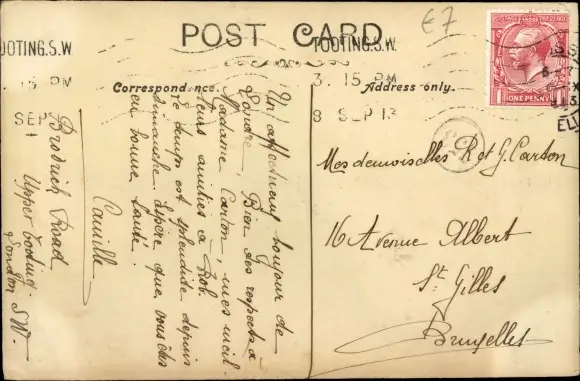 POST CARD
€7
TOOTING.S.W.
3. 15 PM
8 SEP 13
TOOTING.S.W.
15 PM
SEP
Correspondence.
Address only.
POSTAGE
ONE PENNY
Un affectueux bonjour de
Londres. Bien des respects à
Madame Carton, mes meil-
leurs amitiés à Rob.
Le temps est splendide depuis
dimanche. Espère que vous êtes
en bonne santé.
Camille
Brodrick Road
Upper Tooting.
London S.W.
Mesdemoiselles R et G. Carton
16 Avenue Albert
St. Gilles
Bruxelles